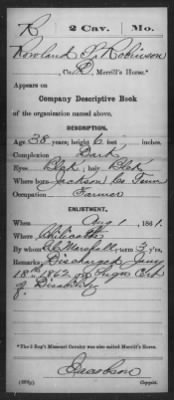 R 2 Cav. Mo.
Rowland S. Robinson
, Co. D, Merrill's Horse.*
Appears on
Company Descriptive Book
of the organization named above.
DESCRIPTION.
Age 38 years; height 6 feet inches.
Complexion Dark
Eyes Blck; hair Blck
Where born Jackson Co Tenn
Occupation Farmer
ENLISTMENT.
When Aug 1, 1861.
Where Chilicothe
By whom Marshall; term 3 y'rs.
Remarks: Discharged Jany
18th 1862 on Surgn Cert
of Disability
*The 2 Reg't Missouri Cavalry was also called Merrill's Horse.
Jacobson
Copyist.